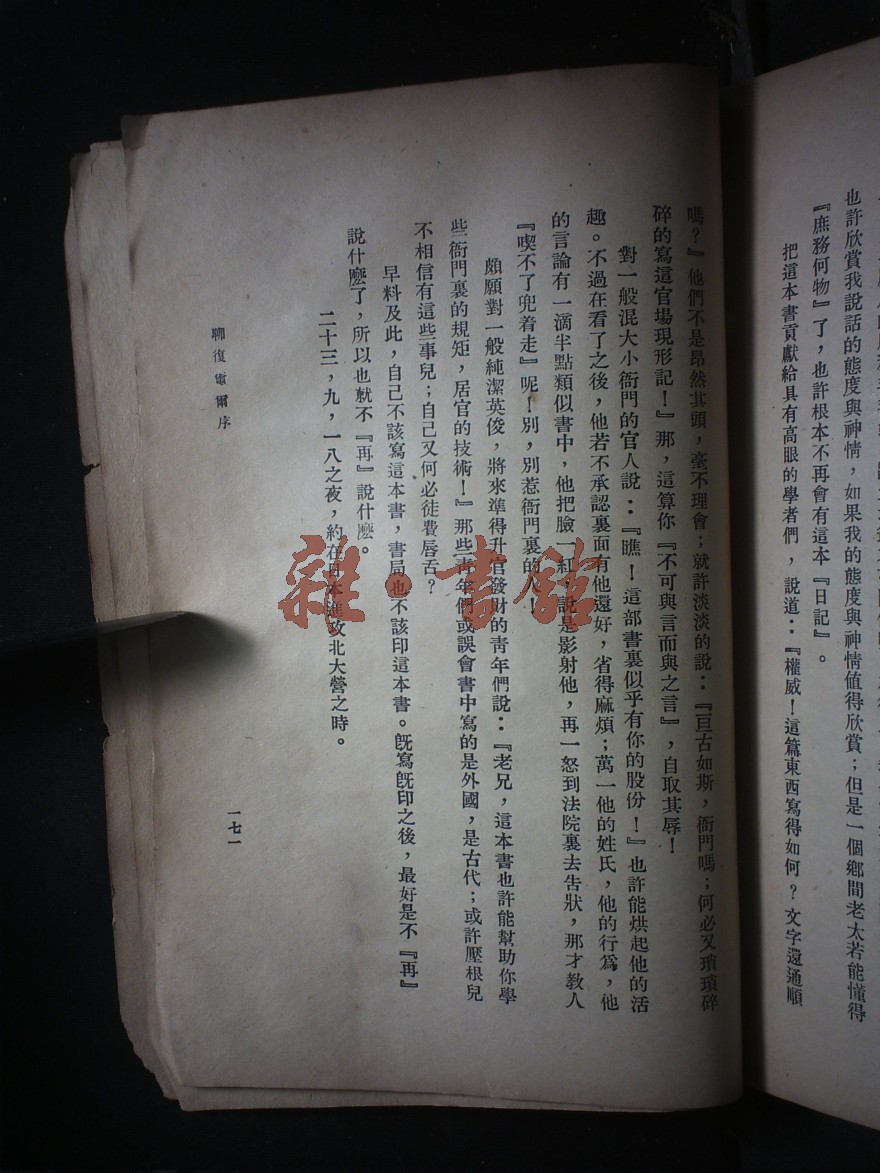 也許欣賞我說話的態度與神情，如果我的態度與神情值得欣賞；但是一個鄉間老太若能懂得
『庶務何物』了，也許根本不再會有這本『日記』。
把這本書貢獻給具有高眼的學者們，說道：『權威！這篇東西寫得如何？文字還通順
嗎？』他們不是昂然其頭，毫不理會；就許淡淡的說：『亘古如斯，衙門嗎；何必又瑣瑣碎
碎的寫這官場現形記！』那，這算你『不可與言而與之言』，自取其辱！
對一般混大小衙門的官人說：『瞧！這部書裏似乎有你的股份！』也許能烘起他的活
趣。不過在看了之後，他若不承認裏面有他還好，省得麻煩；萬一他的姓氏，他的行為，他
的言論有一滴半點類似書中，他把臉一紅，說是影射他，再一怒到法院裏去告狀，那才教人
『喫不了兜着走』呢！別，別惹衙門裏的人！
頗願對一般純潔英俊，將來準得升官發財的靑年們說：『老兄，這本書也許能幫助你學
些衙門裏的規矩，居官的技術！』那些靑年們或誤會書中寫的是外國，是古代；或許壓根兒
不相信有這些事兒；自己又何必徒費唇舌？
早料及此，自己不該寫這本書，書局也不該印這本書。旣寫旣印之後，最好是不『再』
說什麽了，所以也就不『再』說什麽。
二十三，九，一八之夜，約在日本進攻北大營之時。
聊復爾爾序
一七一
雜·書館